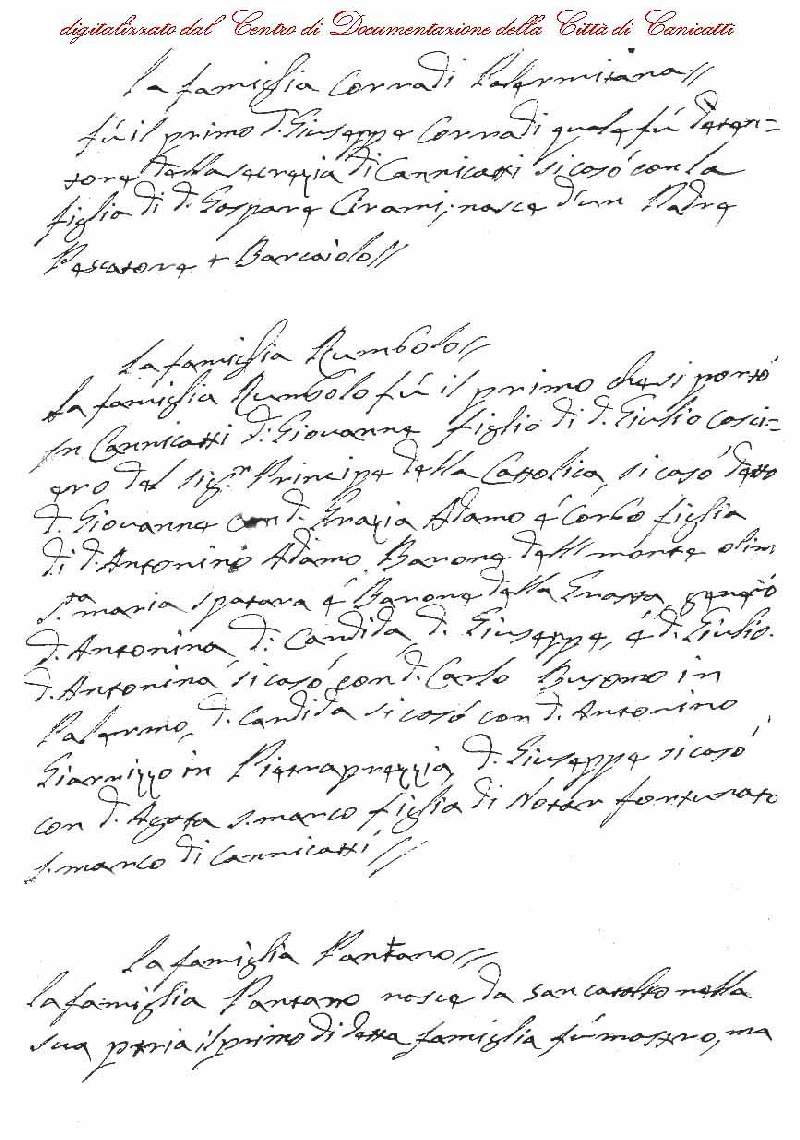 digitalizzato dal Centro di Documentazione della Città di Canicattì
La famiglia Corradi Palermitana//
fú il primo d. Giuseppe Corradi quale fú deten=
tore della secrezia di Cannicatti si casò con la
figlia di d. Gaspare Cirami; nasce d'un Padre
Pescatore + Barcaiolo//
La famiglia Rumbolo//
La famiglia Rumbolo fú il primo che si portò
in Cannicatti d. Giovanne figlio di d. Giulio casci=
ero del sig.r Principe della Cattolica, si casò detto
d. Giovanne con d. Grazia Adamo é Corbo figlia
di d. Antonino Adamo Barone dell monte olim
s.ta maria spatara é Barone della Grazza generò
d. Antonina, d. Candida, d. Giuseppe, é d. Giulio.
d. Antonina si casò con d. Carlo in
Palermo, d. Candida si casò con d. Antonino
Giarnizzo in Pietraprezzia, d. Giuseppe si casò
con d. Agata s.marco figlia di Notar fortunato
s.marco di Cannicatti//
La famiglia Pantano//
La famiglia Pantano nasce da san cataldo nella
sua patria il primo di detta famiglia fú mastro, ma